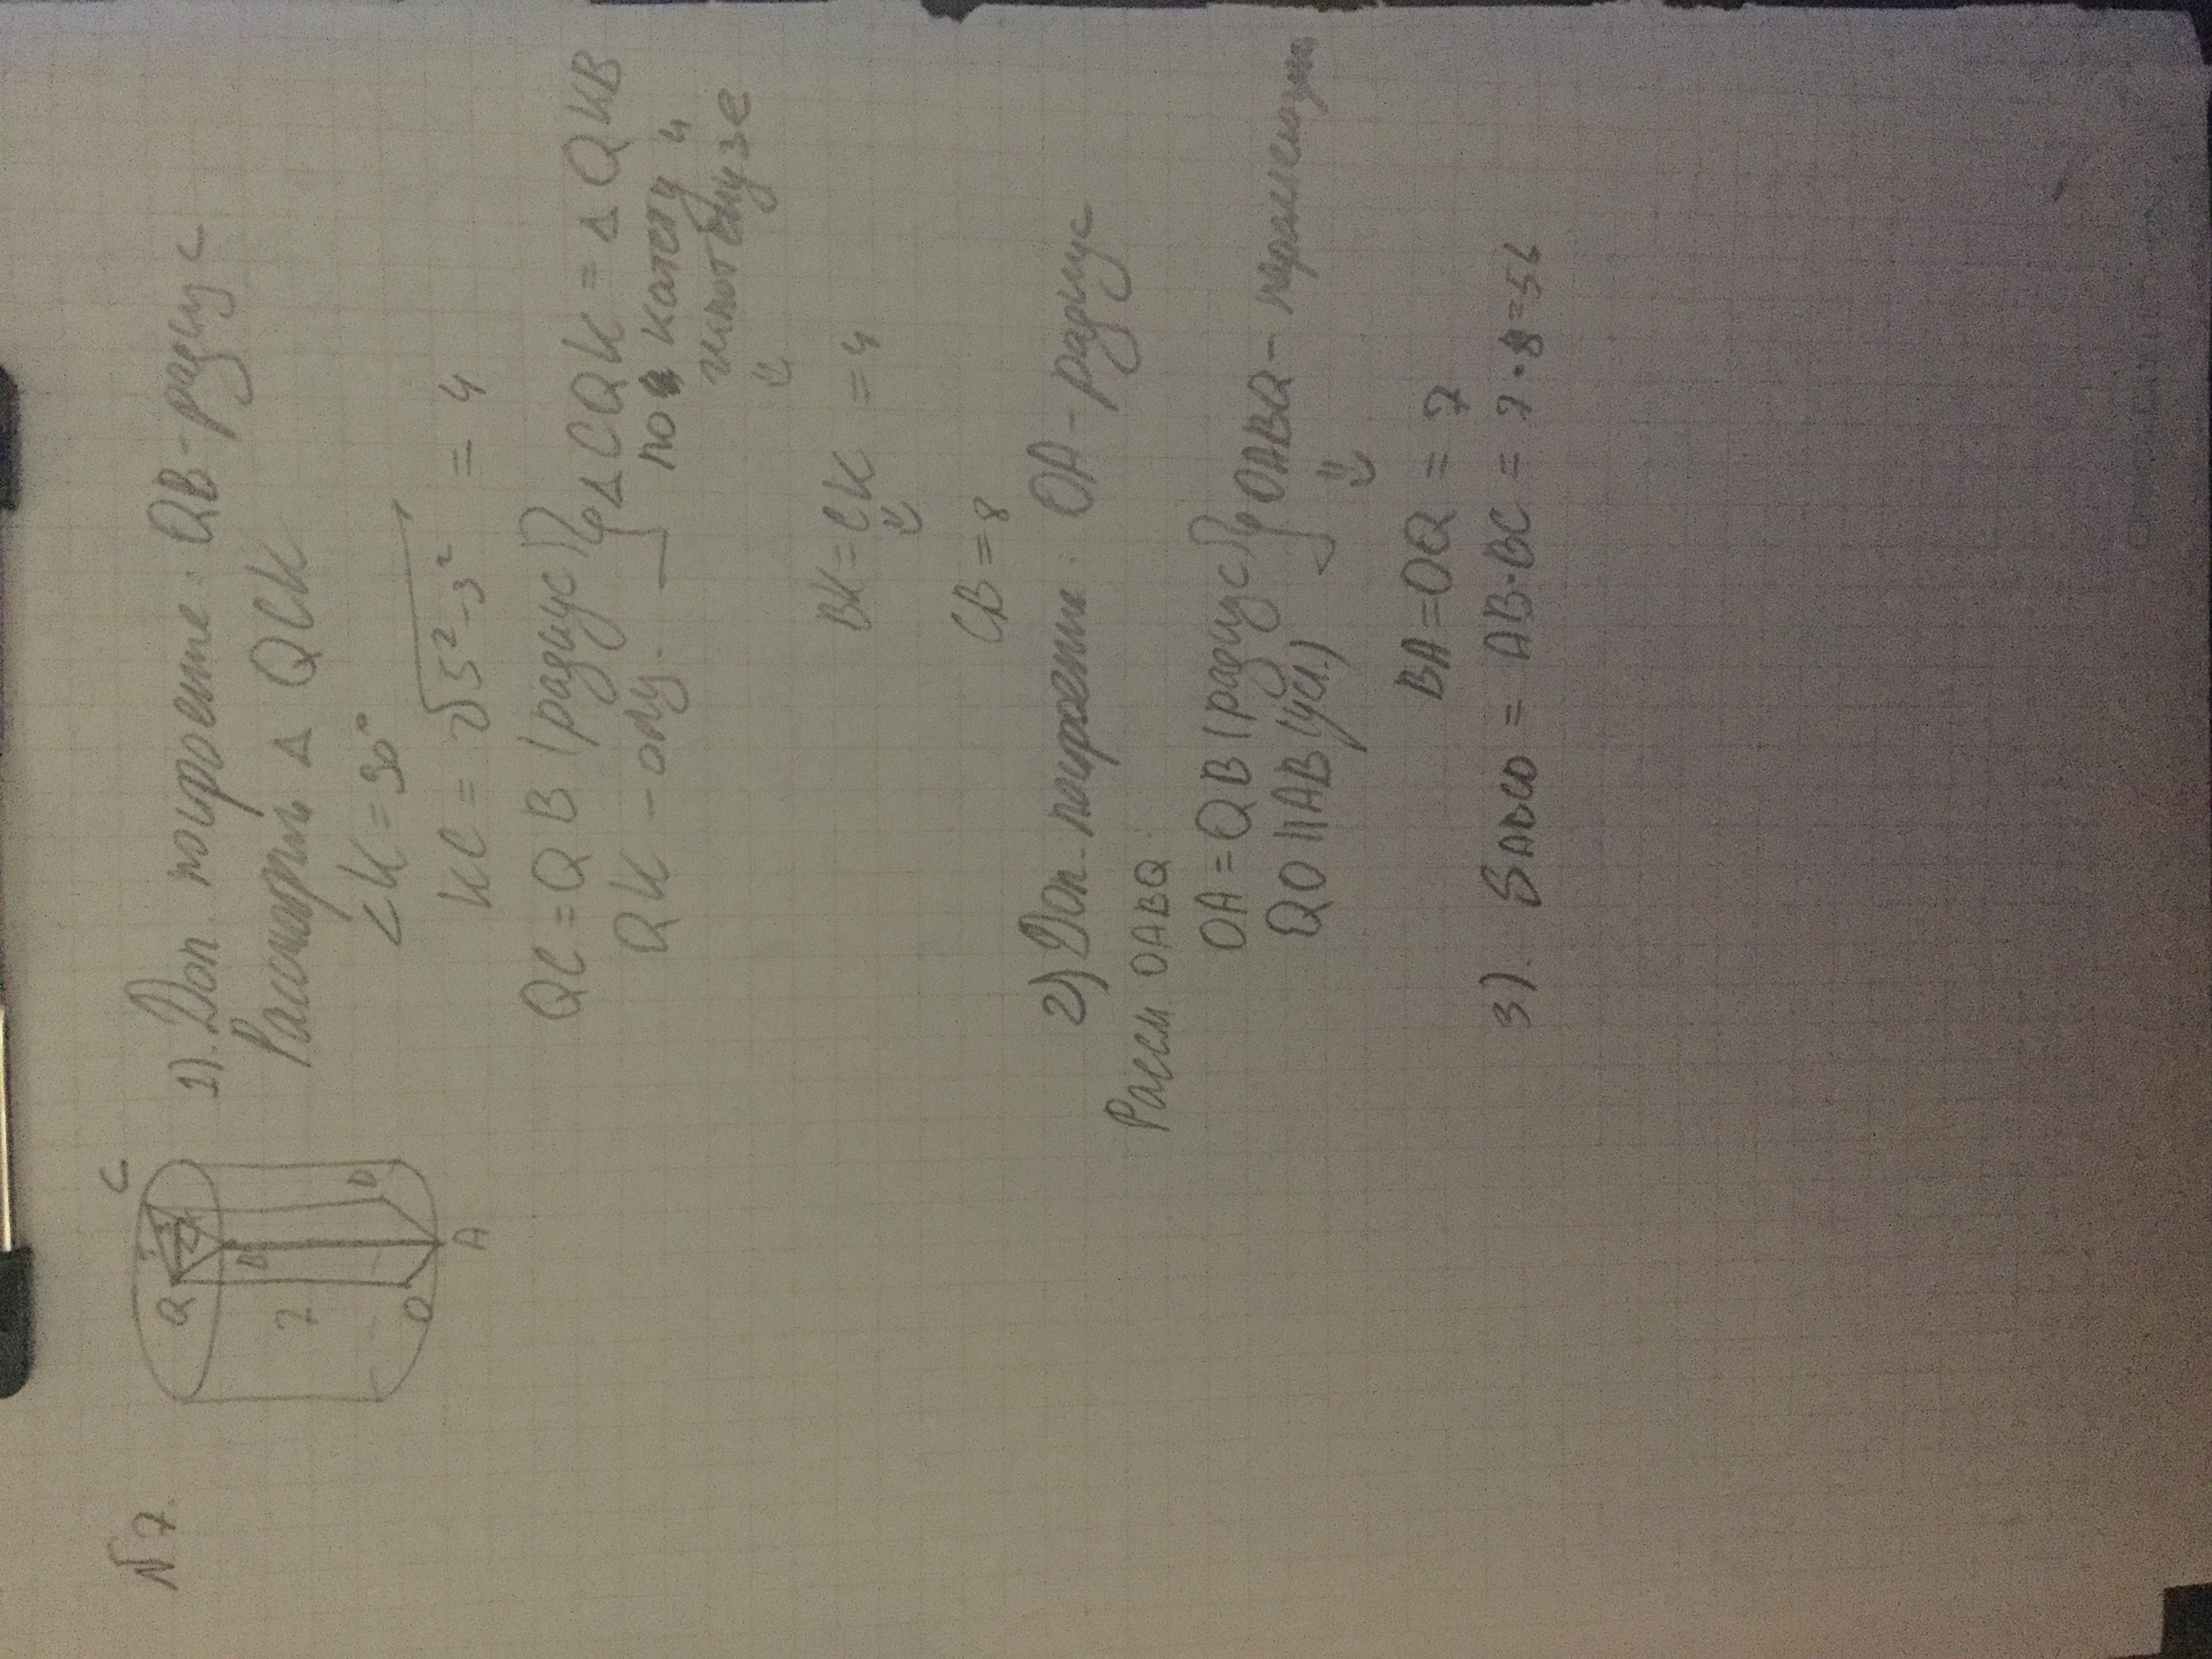 №7.
Q
C
3
7
B
D
O
A
1). Доп. построение: QB - радиус
Рассмотрим Δ QCK
∠K = 90°
KC = √5² - 3² = 4
QC = QB (радиус)
QK - общ.
Δ CQK = Δ QKB
по катету и
гипотенузе
⇓
BK = CK = 4
⇓
CB = 8
2) Доп. построение: OA - радиус
Рассм OABQ.
OA = QB (радиус)
QO || AB (усл.)
OABQ - параллелограмм
⇓
BA = OQ = 7
3). SABCD = AB · BC = 7 · 8 = 56